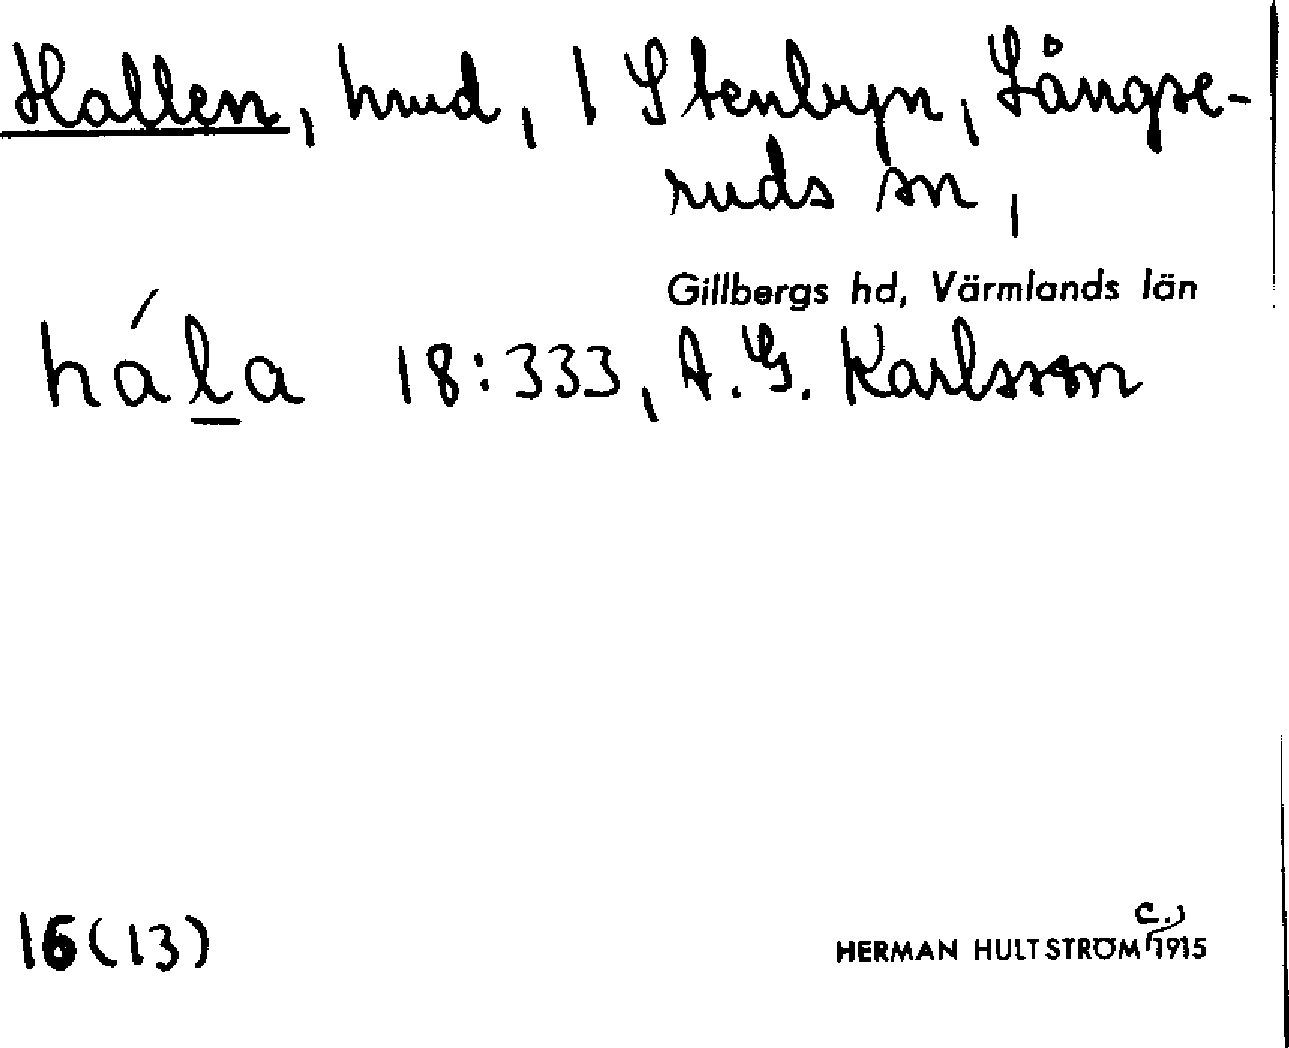 Hallen, hmd, 1 Stenbyn, Långse-
ruds sn,
Gillbergs hd, Värmlands län
hála 18:333, A. G. Karlsson
16(13)
c.
HERMAN HULTSTRÖM 1915